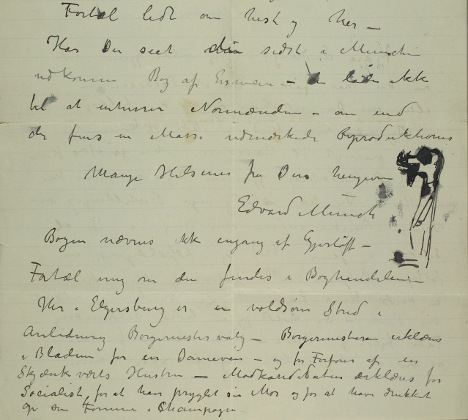 Fortæl lidt om nyt og
Har De seet den sidst i München
udkomne Bog af Esswein – den ikke
til at Normænden – om end
der fins en Masse udmærkede Reproduktioner
Mange Hilsener fra Deres hengivne
Edvard Munch
Bogen nævnes ikke engang af Gyerløff –
Fortæl mig om den findes i Boghandelen –
Her i Elgersburg er en voldsom Strid i
Anledning Borgermestervalg – Borgermesteren erklæres
i Bladene for en Dameven – og for Forfører af en
Skjænkeverts Hustru – Modkandidaten erklæres for
Socialist, for at have prygglt sin Mor og for at have drukket
op sin Formue i Champagne –